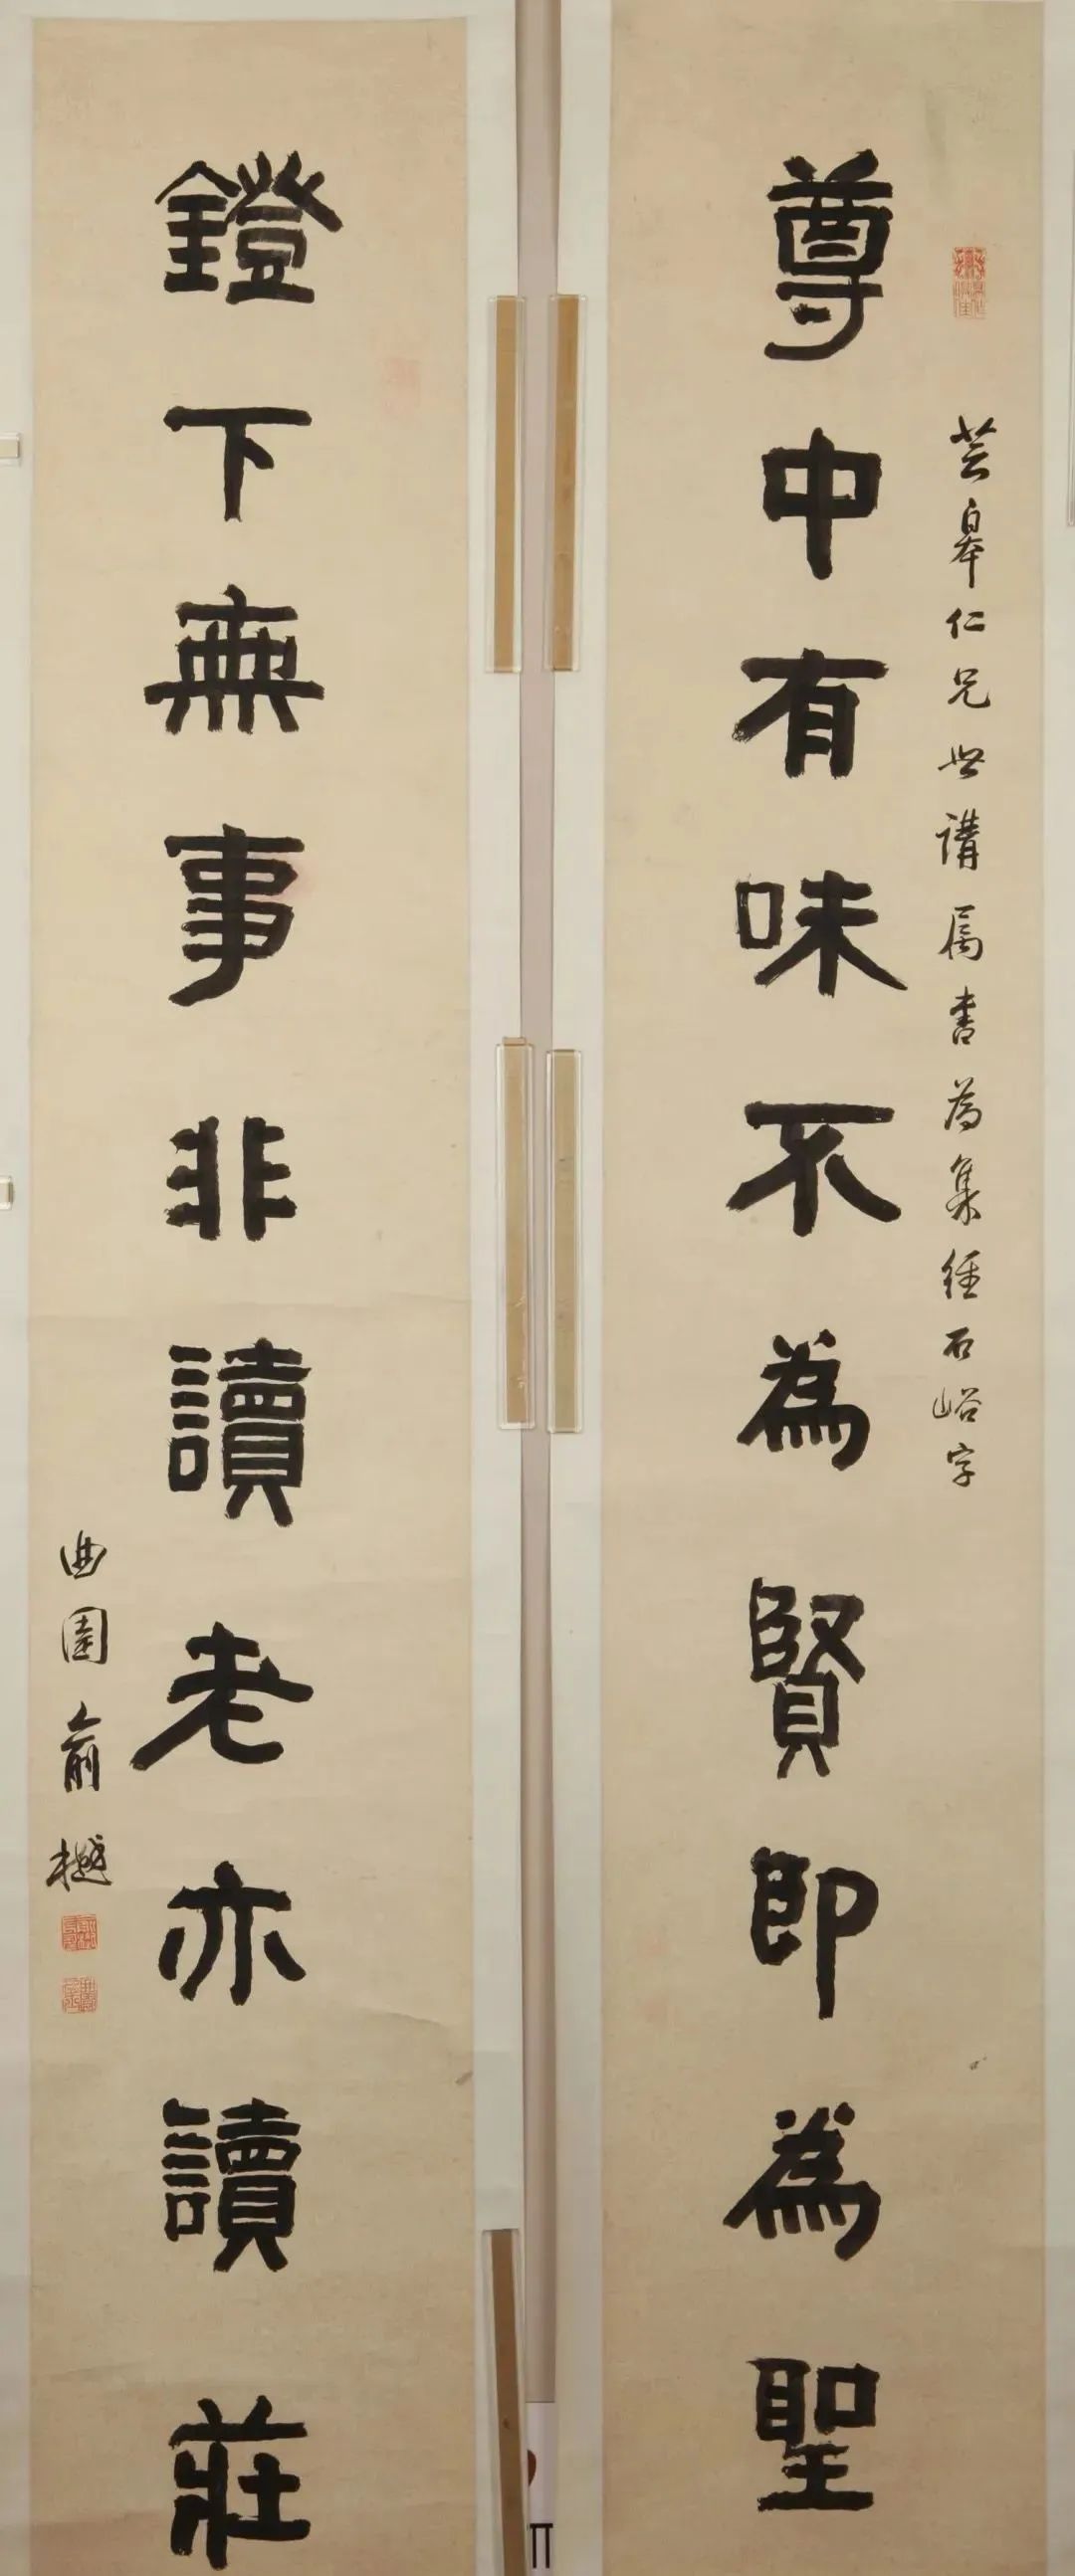 芸皋仁兄世講属書為集經石峪字
尊中有味不為賢即為聖
鐙下無事非讀老亦讀莊
曲園俞樾